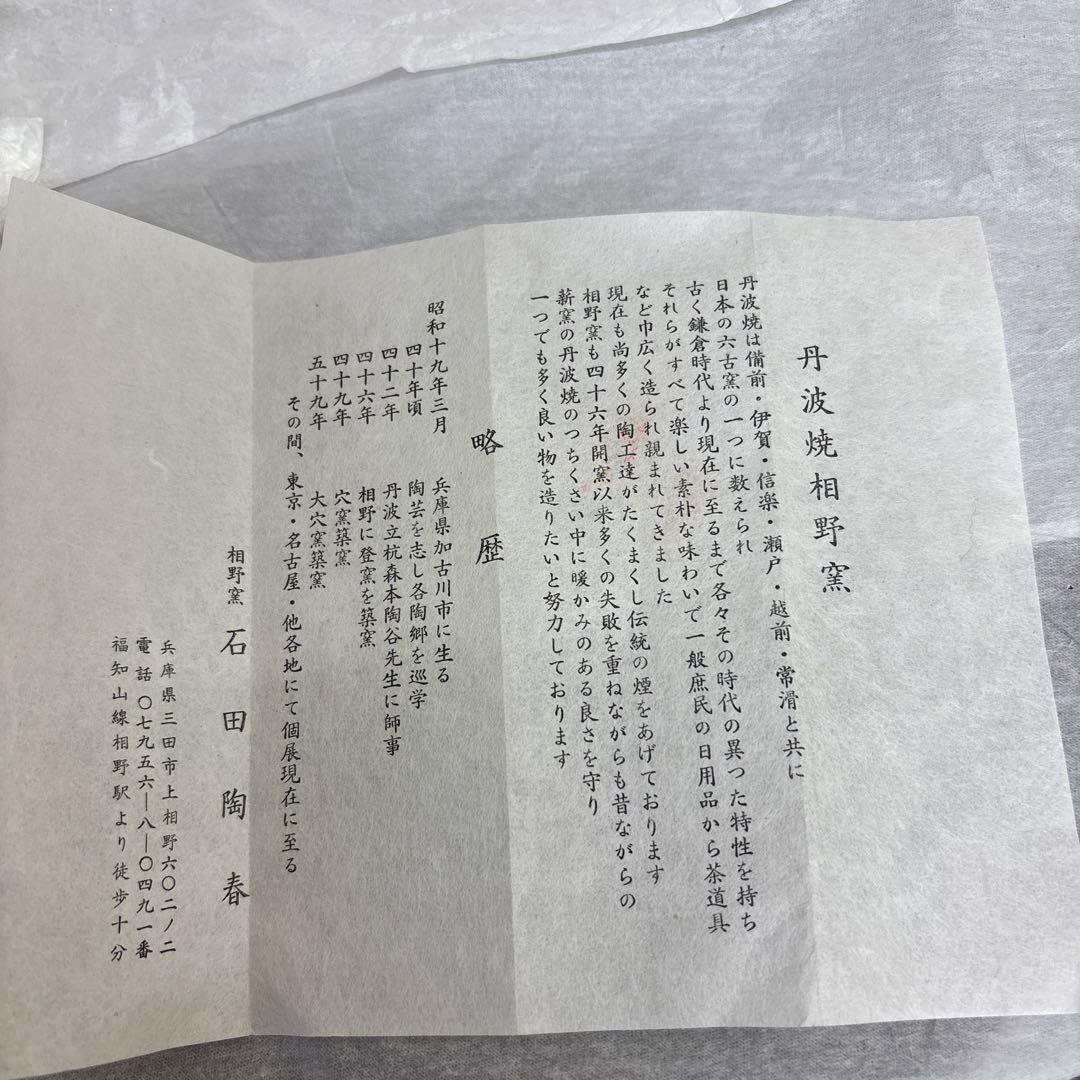 丹波焼相野窯
丹波焼は備前・伊賀・信楽・瀬戸・越前・常滑と共に
日本の六古窯の一つに数えられ
古く鎌倉時代より現在に至るまで各々その時代の異つた特性を持ち
それらがすべて楽しい素朴な味わいで一般庶民の日用品から茶道具
など巾広く造られ親まれてきました
現在も尚多くの陶工達がたくまくし伝統の煙をあげております
相野窯も四十六年開窯以来多くの失敗を重ねながらも昔ながらの
薪窯の丹波焼のつちくさい中に暖かみのある良さを守り
一つでも多く良い物を造りたいと努力しております
略歴
昭和十九年三月 兵庫県加古川市に生る
四十年頃 陶芸を志し各陶郷を巡学
四十二年 丹波立杭森本陶谷先生に師事
四十六年 相野に登窯を築窯
四十九年 穴窯築窯
五十九年 大穴窯築窯
その間、東京・名古屋・他各地にて個展現在に至る
相野窯 石田陶春
兵庫県三田市上相野六〇二ノ二
電話〇七九五六―八―〇四九一番
福知山線相野駅より徒歩十分